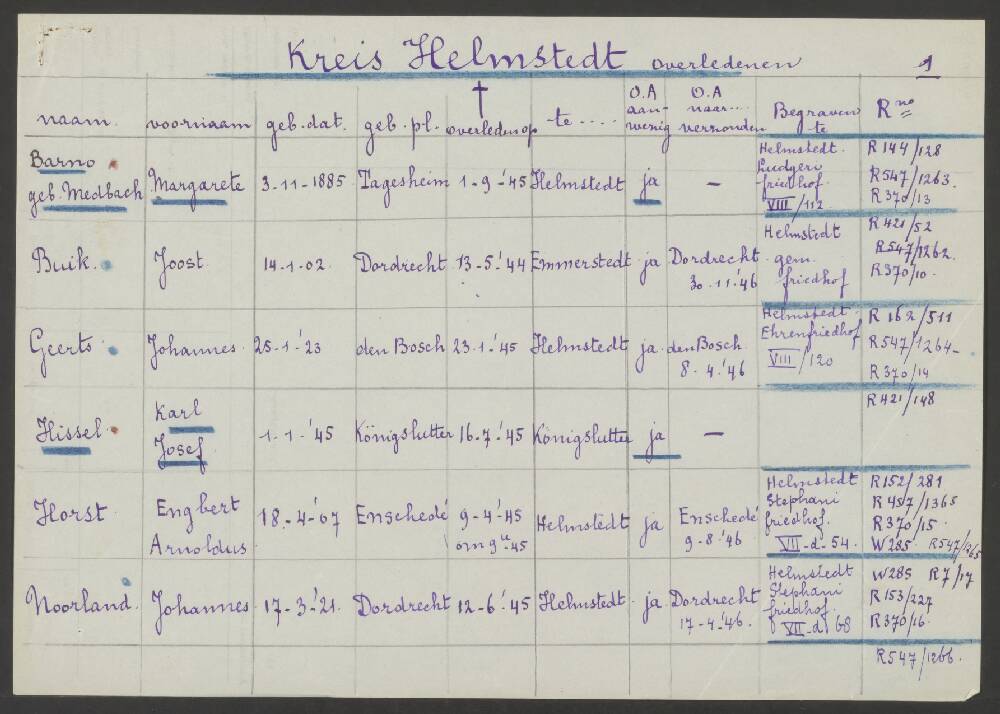 Kreis Helmstedt overledenen 1
naam. voornaam geb. dat. geb. pl. † overleden op te .... O.A aanwezig O.A naar... verzonden Begraven te R no
Barno geb. Medbach Margarete 3-11-1885 Tagesheim 1-9-'45 Helmstedt ja — Helmstedt. Ludgeri friedhof. VIII/112 R144/128 R547/1263. R370/13
Buik. Joost 14-1-02. Dordrecht 13-5-'44 Emmerstedt ja Dordrecht 30-11-'46 Helmstedt gem. friedhof R421/52 R547/1262. R370/10.
Geerts. Johannes. 25-1-'23 den Bosch 23-1-'45 Helmstedt ja. den Bosch 8-4-'46 Helmstedt. Ehrenfriedhof VIII/120 R162/511 R547/1264- R370/14
Hissel. Karl Josef 1-1-'45 Königslutter 16-7-'45 Königslutter ja — R421/148
Horst. Engbert Arnoldus 18-4-'07 Enschedé 9-4-'45 om 9u-45 Helmstedt ja Enschedé 9-8-'46 Helmstedt Stephani friedhof. VII-d-54. R152/281 R457/1365 R370/15. W285. R547/1265
Noorland. Johannes 17-3-'21. Dordrecht 12-6-'45 Helmstedt. ja. Dordrecht 17-4-'46. Helmstedt Stephani friedhof. VII-d-68 W285 R7/17 R153/227 R370/16.
R547/1266.